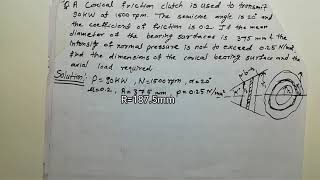 Q. A Conical friction clutch is used to transmit
90 kW at 1500 rpm. The semicone angle is 20° and
the coefficient of friction is 0.2. If the mean
diameter of the bearing surfaces is 375 mm & the
intensity of normal pressure is not to exceed 0.25 N/mm²
find the dimensions of the conical bearing surface and the
axial load required.
Solution:- P=90KW, N=1500 rpm, α=20°
μ=0.2, R=375 mm, p=0.25 N/mm²
R=187.5mm